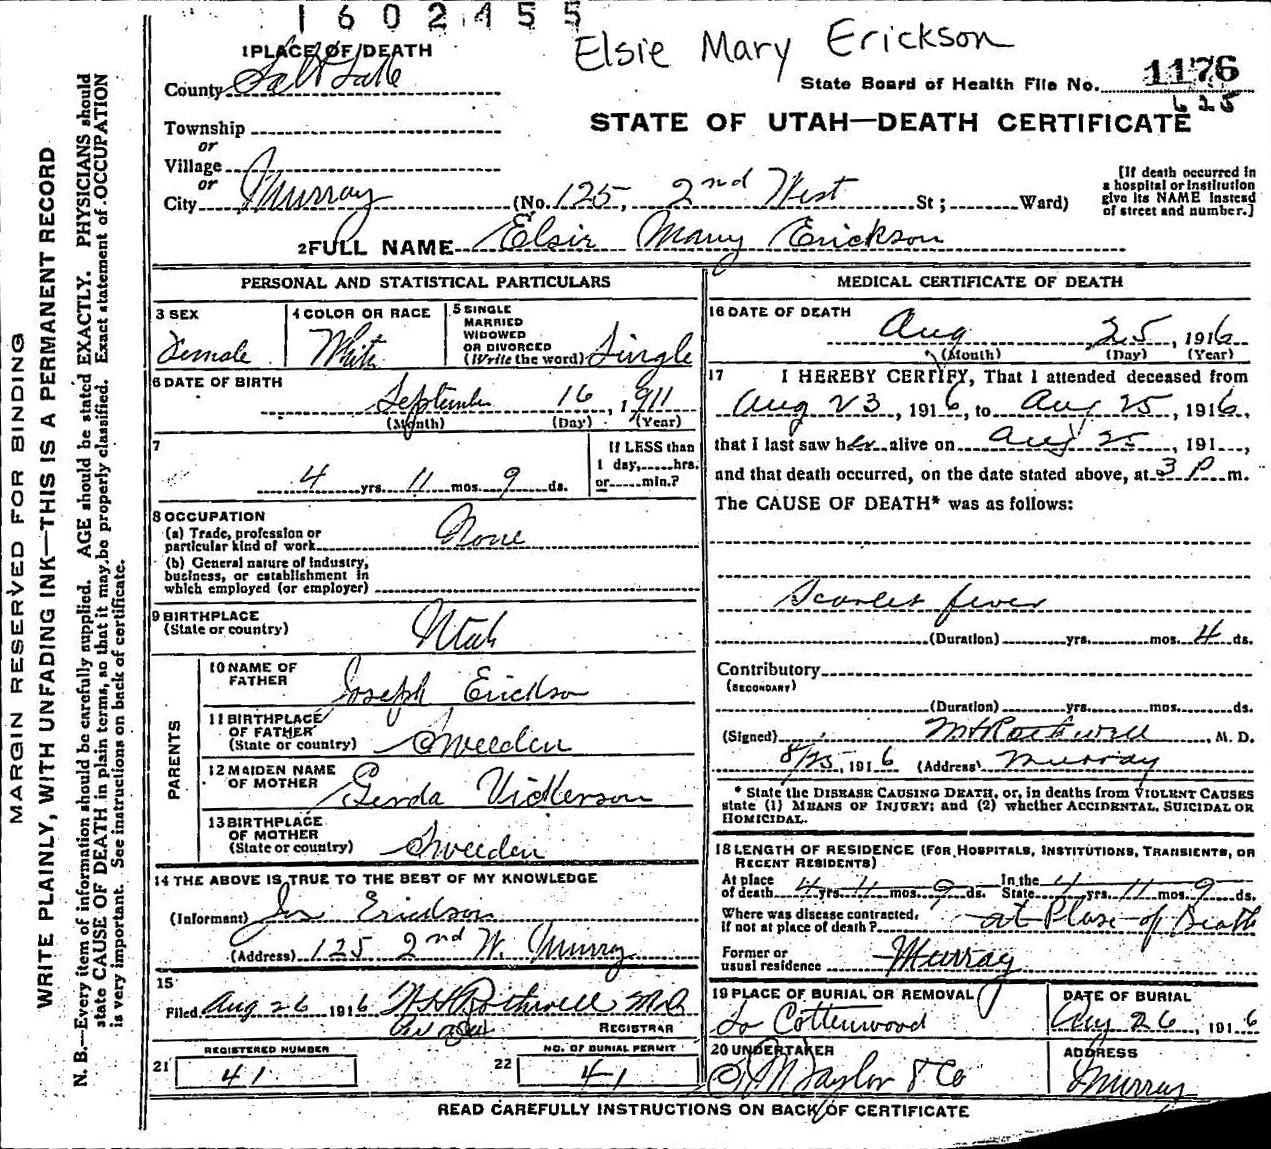 1602455
Elsie Mary Erickson
1 PLACE OF DEATH
County Salt Lake
State Board of Health File No. 1176
625
STATE OF UTAH—DEATH CERTIFICATE
Township
or
Village
or
City Murray (No. 125, 2nd West St; Ward)
[If death occurred in a hospital or institution give its NAME instead of street and number.]
2 FULL NAME Elsie Mary Erickson
PERSONAL AND STATISTICAL PARTICULARS
3 SEX
Female
4 COLOR OR RACE
White
5 SINGLE
MARRIED
WIDOWED
OR DIVORCED
(Write the word) Single
6 DATE OF BIRTH
September 16, 1911
(Month) (Day) (Year)
7
4 yrs. 11 mos. 9 ds.
If LESS than
1 day,.....hrs.
or.....min.?
8 OCCUPATION
(a) Trade, profession or
particular kind of work None
(b) General nature of Industry,
business, or establishment in
which employed (or employer)
9 BIRTHPLACE
(State or country) Utah
PARENTS
10 NAME OF
FATHER Joseph Erickson
11 BIRTHPLACE
OF FATHER
(State or country) Sweeden
12 MAIDEN NAME
OF MOTHER Gerda Vickerson
13 BIRTHPLACE
OF MOTHER
(State or country) Sweeden
14 THE ABOVE IS TRUE TO THE BEST OF MY KNOWLEDGE
(Informant) Jos Erickson
(Address) 125 2nd W. Murray
15
Filed Aug 26 1916 H S Rothwell MD
REGISTRAR
REGISTERED NUMBER
21 41
NO. OF BURIAL PERMIT
22 41
MEDICAL CERTIFICATE OF DEATH
16 DATE OF DEATH
Aug 25, 1916
(Month) (Day) (Year)
17 I HEREBY CERTIFY, That I attended deceased from
Aug 23, 1916, to Aug 25, 1916,
that I last saw her alive on Aug 25, 191...,
and that death occurred, on the date stated above, at 3 P m.
The CAUSE OF DEATH* was as follows:
Scarlet fever
(Duration) yrs. mos. 4 ds.
Contributory
(SECONDARY)
(Duration) yrs. mos. ds.
(Signed) Rothwell, M. D.
8/25, 1916 (Address) Murray
* State the DISEASE CAUSING DEATH, or, in deaths from VIOLENT CAUSES
state (1) MEANS OF INJURY; and (2) whether ACCIDENTAL, SUICIDAL OR
HOMICIDAL.
18 LENGTH OF RESIDENCE (FOR HOSPITALS, INSTITUTIONS, TRANSIENTS, OR
RECENT RESIDENTS)
At place
of death 4 yrs. 11 mos. 9 ds. In the
State 4 yrs. 11 mos. 9 ds.
Where was disease contracted,
If not at place of death? at Place of Death
Former or
usual residence Murray
19 PLACE OF BURIAL OR REMOVAL
So Cottenwood
DATE OF BURIAL
Aug 26, 1916
20 UNDERTAKER
Taylor & Co
ADDRESS
Murray
READ CAREFULLY INSTRUCTIONS ON BACK OF CERTIFICATE
MARGIN RESERVED FOR BINDING
WRITE PLAINLY, WITH UNFADING INK—THIS IS A PERMANENT RECORD
N. B.—Every item of information should be carefully supplied. AGE should be stated EXACTLY. PHYSICIANS should
state CAUSE OF DEATH in plain terms, so that it may be properly classified. Exact statement of OCCUPATION
is very important. See instructions on back of certificate.